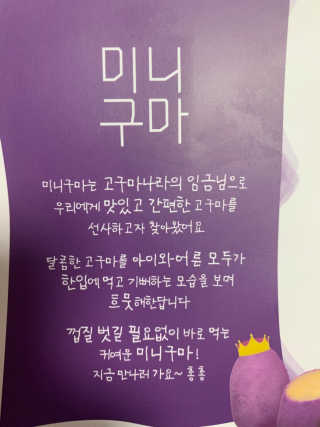 미니
구마
미니구마는 고구마나라의 임금님으로
우리에게 맛있고 간편한 고구마를
선사하고자 찾아왔어요
달콤한 고구마를 아이와어른 모두가
한입에 먹고 기뻐하는 모습을 보며
흐뭇해한답니다
껍질 벗길 필요없이 바로 먹는
귀여운 미니구마!
지금 만나러 가요~ 홍홍